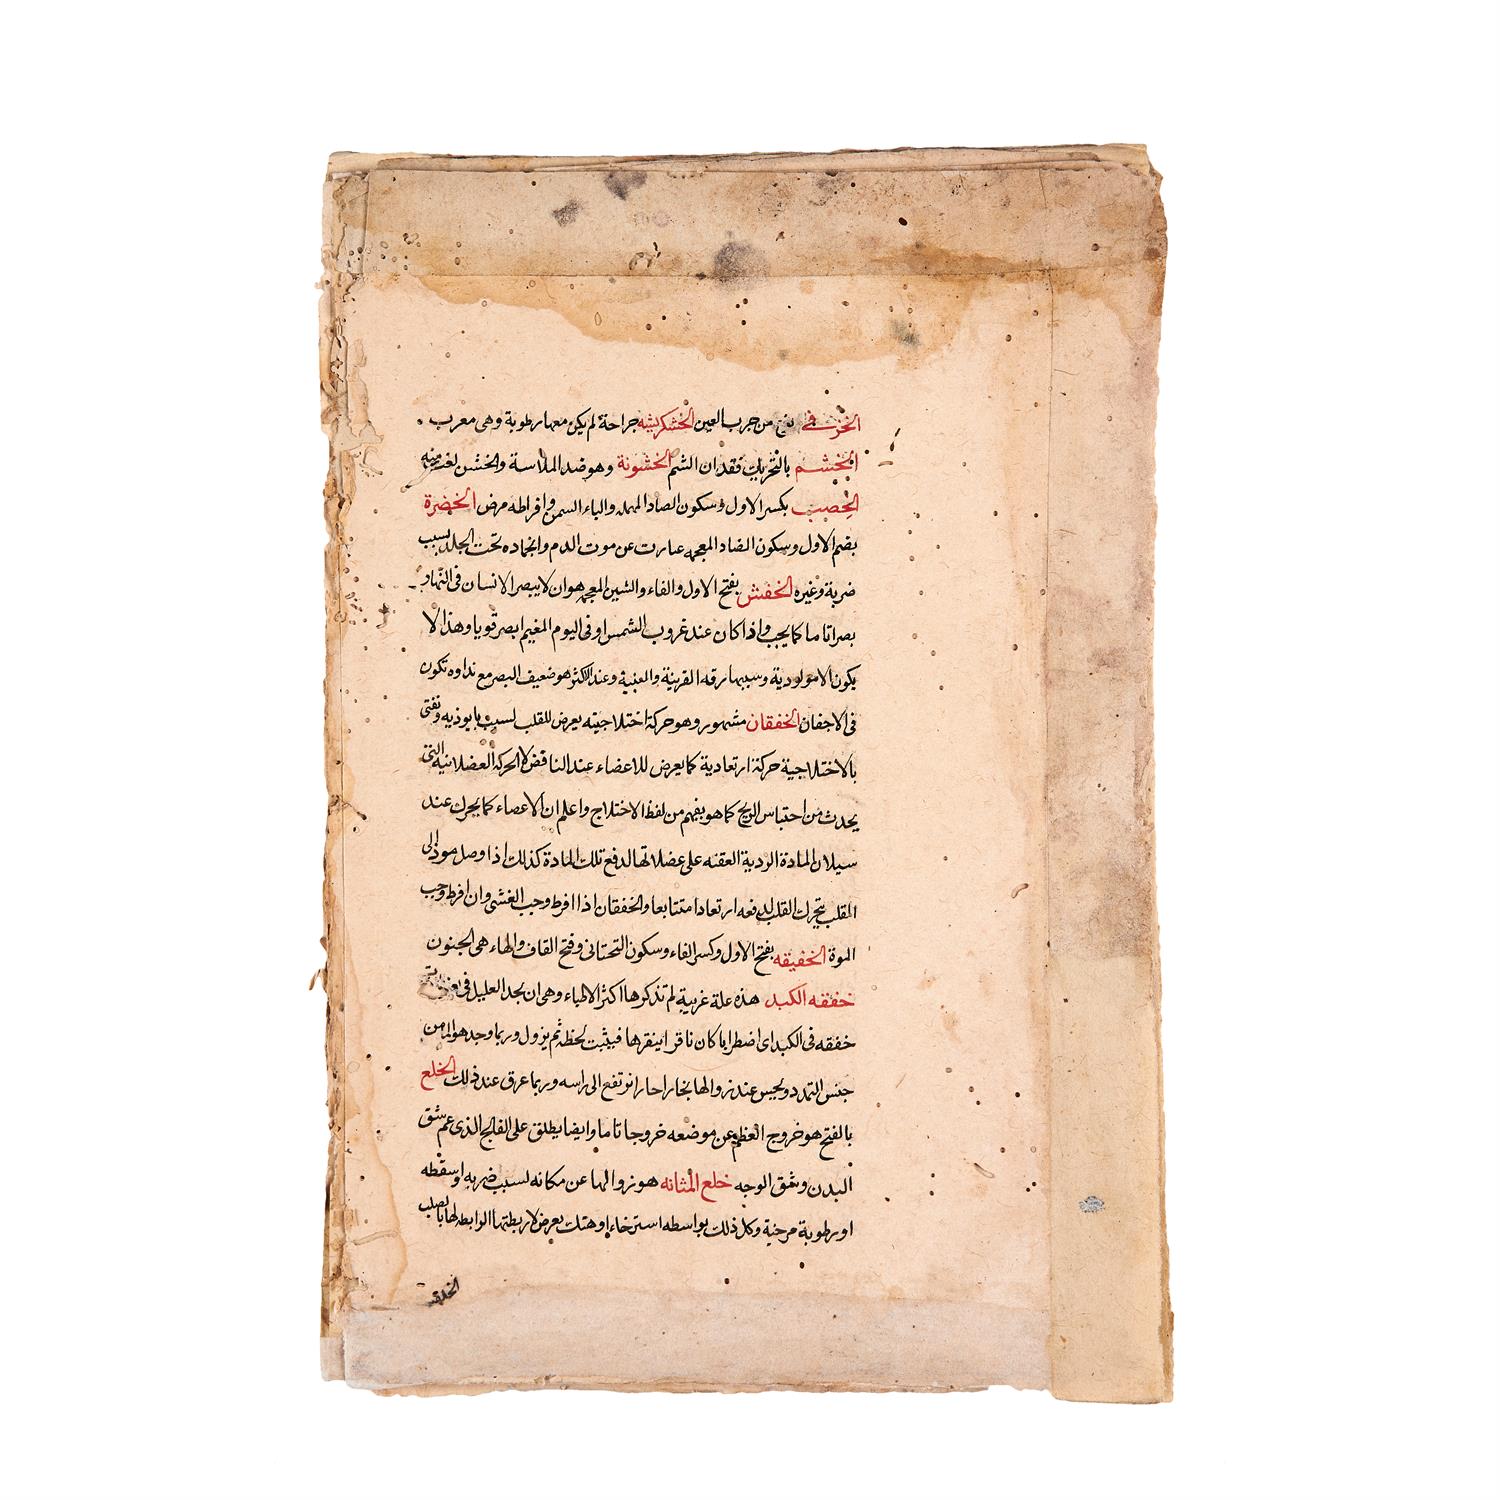 من جرب العين الخشكريشه جراحة لم يكن معها رطوبة وهى معرب
الخشم بالتحريك فقدان الشم الخشونة وهو ضد الملاسة والخشن لغة منه
الخصب بكسر الاول وسكون الصاد المهمله والباء السمن وافراطه مرض الخضرة
بضم الاول وسكون الضاد المعجمه عبارت عن موت الدم وانجماده تحت الجلد بسبب
ضربة وغيره الخفش بفتح الاول والفاء والشين المعجمه هو ان لا يبصر الانسان فى النهار
بصرا تاما كما يجب واذا كان عند غروب الشمس او فى اليوم المغيم ابصر قويا وهذا لا
يكون الا مولودية وسببها رقه القرنية والعنبية وعند الاكثر هو ضعيف البصر مع نداوه تكون
فى الاجفان الخفقان مشهور وهو حركة اختلاجيته يعرض للقلب لسبب ما يوذيه ونفنى
بالاختلاجية حركة ارتعادية كما يعرض للاعضاء عند النافض لا الحركة العضلانيه التى
يحدث من احتباس الريح كما هو يفهم من لفظ الاختلاج واعلم ان الاعضاء كما يحرك عند
سيلان المادة الردية العفنه على عضلاتها لدفع تلك المادة كذلك اذا وصل موذ الى
القلب يتحرك القلب لدفعه ارتعادا متتابعا والخفقان اذا افرط وجب الغشى وان افرط وجب
الموة الخفيقه بفتح الاول وكسر الفاء وسكون التحتانى وفتح القاف والهاء هى الجنون
خفقه الكبد هذه علة غريبة لم تذكرها اكثر الاطباء وهى ان يجد العليل فى
خفقه فى الكبد اى اضطرابا كان ناقرا ينقرها فيثبت لحظه ثم يزول وربما وجد هو الما من
جنس التمدد ويحس عند زوالها بخارا حارا نرتفع الى راسه وربما عرق عند ذلك الخلع
بالفتح هو خروج العظم عن موضعه خروجا تاما وايضا يطلق على الفالج الذى عم شق
البدن وشق الوجه خلع المثانه هو زوالها عن مكانه لسبب ضربه او سقطه
او رطوبة مرخية وكل ذلك بواسطه استرخاء او هتك يعرض لاربطتها الرابطه لها بالصلب